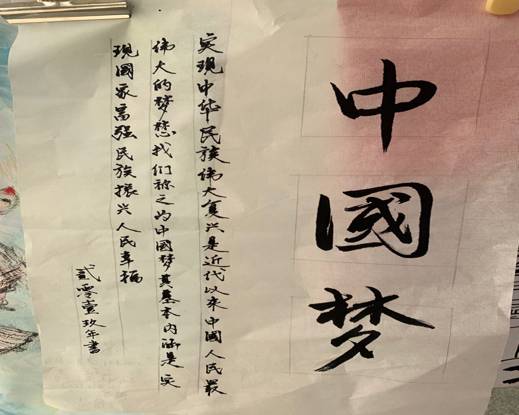 中國梦
实现中华民族伟大复兴是近代以来中國人民最
伟大的梦想我们称之为中國梦其基本内涵是实
现國家富强民族振兴人民幸福
貳零壹玖年書